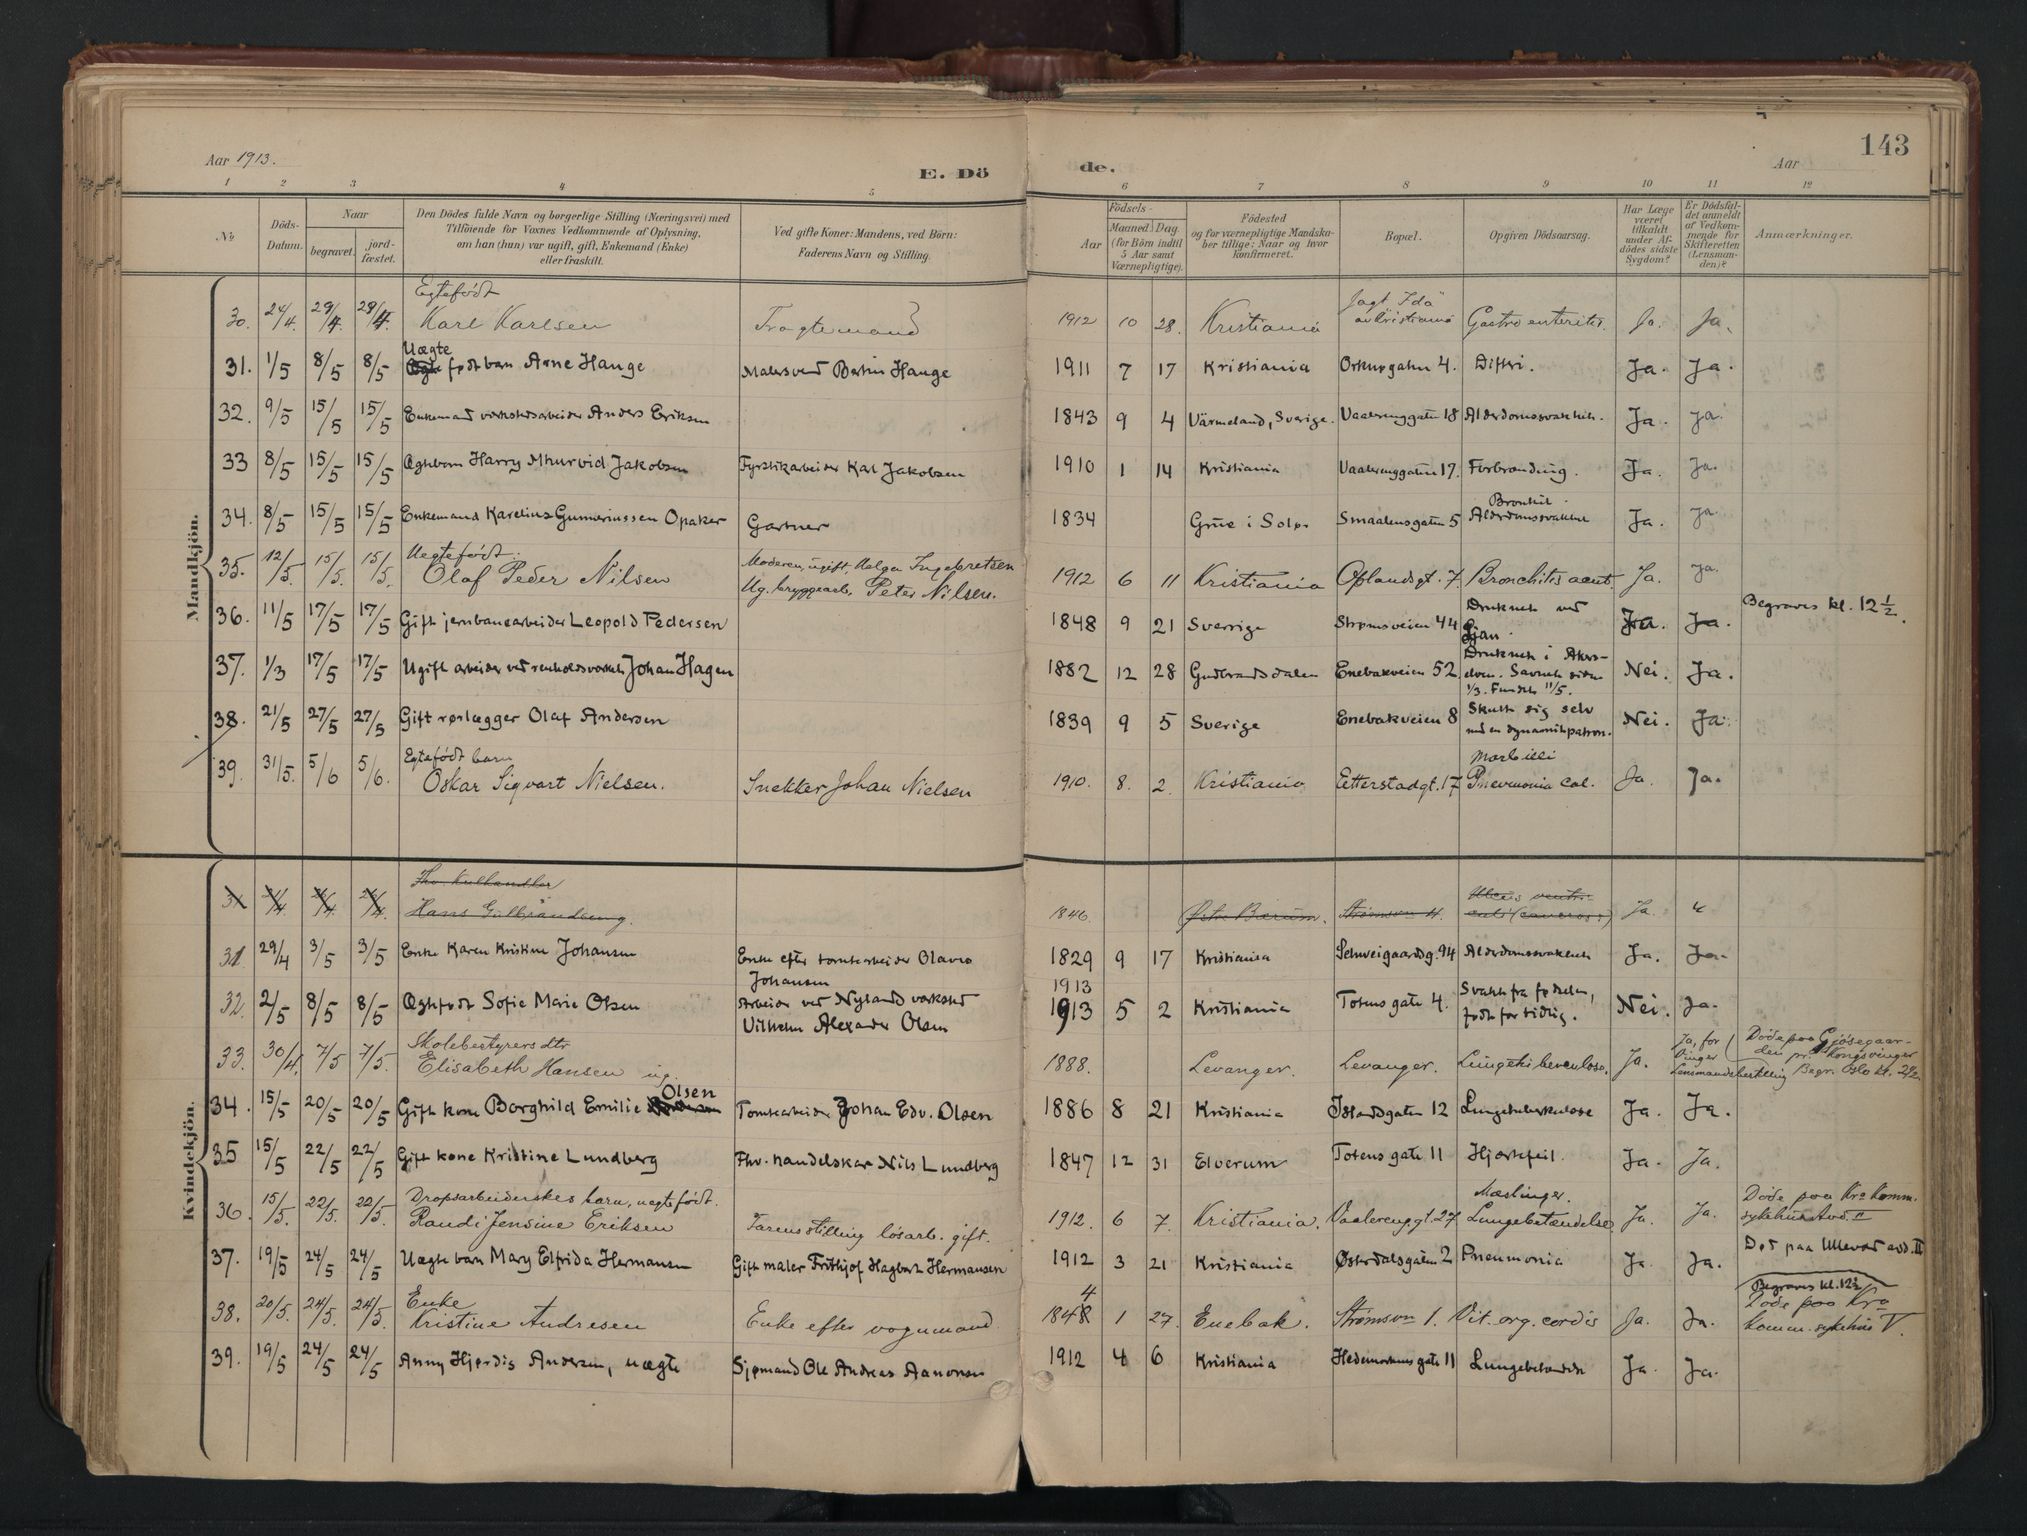 143
Aar 1913.
E. Dö
de.
Aar
1 2 3 4 5 6 7 8 9 10 11 12
№
Döds-Datum.
Naar
begravet.
jord-fæstet.
Den Dödes fulde Navn og borgerlige Stilling (Næringsvei) med
Tilföiende for Voxnes Vedkommende af Oplysning,
om han (hun) var ugift, gift, Enkemand (Enke)
eller fraskilt.
Ved gifte Koner: Mandens, ved Börn:
Faderens Navn og Stilling.
Födsels-
Aar
Maaned Dag.
(for Börn indtil
5 Aar samt
Værnepligtige).
Födested
og for værnepligtige Mandska-
ber tillige: Naar og hvor
konfirmeret.
Bopæl.
Opgiven Dödsaarsag.
Har Læge
været
tilkaldt
under Af-
dödes sidste
Sygdom?
Er Dödsfal-
det anmeldt
af Vedkom-
mende for
Skifteretten
(Lensman-
den)?
Anmærkninger.
Mandkjön.
Egtefödt
30. 24/4. 29/4. 29/4. Karl Karlsen 1912 10 28. Kristiania Jagt "Ida" av Kristiania Gastro enterites. Ja. Ja.
Uægte
31. 1/5 8/5 8/5 født barn Arne Hauge Malersvend Hauge 1911 7 17 Kristiania 4. Difteri. Ja. Ja.
32. 9/5 15/5 15/5 Enkemand verkstedsarbeider Anders Eriksen 1843 9 4 Värmeland, Sverige. Vaalerenggaten 18 Alderdomssvakhet. Ja. Ja.
33 8/5 15/5 15/5 Ægtebarn Harry Jakobsen Fyrstikarbeider Karl Jakobsen 1910 1 14 Kristiania Vaalerenggaten 17. Forbrænding. Ja. Ja.
34. 8/5 15/5 15/5 Enkemand Karelius Gunneriussen Opaker Gartner 1834 Grue i Solør Smaalensgaten 5 Bronkit Alderdomssvakhet Ja. Ja
35. 12/5. 15/5. 15/5. Uegtefödt: Olaf Peder Nilsen Moderen, ugift, Helga Ingebretsen
Ug. bryggearb. Peter Nilsen. 1912 6 11 Kristiania Oplandsgt. 7. Bronchites acut. Ja. Ja.
36. 11/5 17/5 17/5 Gift jernbanearbeider Leopold Pedersen 1848 9 21 Sverrige Strømsveien 44 Druknet ved Ljan. Ja. Ja. Begraves kl. 12 ½.
37. 1/3 17/5 17/5 Ugift arbeider ved renholdsverket Johan Hagen 1882 12 28 Gudbrandsdalen Enebakveien 52. Druknet i Akers-
elven. Savnet siden
1/3. Fundet 11/5. Nei. Ja.
38. 21/5 27/5 27/5 Gift rørlægger Olaf Andersen 1839 9 5 Sverige Enebakveien 8 Skutt sig selv
med en dynamitpatron. Nei. Ja.
39. 31/5. 5/6 5/6. Egtefödt barn
Oskar Sigvart Nielsen. Snekker Johan Nielsen 1910. 8. 2. Kristiania Etterstadgt. 17 Morbilli
Pnevmonia cat. Ja. Ja.
Kvindekjön.
Fhv. Kulhandler
Hans Gulbrandsen 1846. Østre Bærum. Strømsvn 4. Ja.
31. 29/4 3/5 3/5 Enke Karen Kristine Johansen Enke efter tomtearbeider Olavus
Johansen 1829 9 17 Kristiania Schweigaardsg. 94 Alderdomssvakhet Ja. Ja.
1913
32. 2/5 8/5 8/5 Ægtefødt Sofie Marie Olsen Arbeider ved Nylands verksted
Vilhelm Alexander Olsen 1913 5 2 Kristiania Totens gate 4. Svakhet fra fødselen,
født for tidlig. Nei. Ja.
33. 30/4. 7/5 7/5 Skolebestyrers dtr
Elisabeth Hansen ug. 1888. Levanger. Levanger. Lungetuberculose. Ja. Ja, for
Vinger
Lensmandsbestilling Döde paa Gjøsegaar-
den pr. Kongsvinger
Begr. Oslo kl. 2½.
34 15/5 20/5 20/5 Gift kone Borghild Emilie Olsen Tomtearbeider Johan Edv. Olsen 1886 8 21 Kristiania Islandsgaten 12 Lungetuberkulose Ja. Ja.
35 15/5 22/5 22/5 Gift kone Kristine Lundberg Fhv. handelskar Nils Lundberg 1847 12 31 Elverum Totens gate 11 Hjertefeil. Ja. Ja.
36. 15/5. 22/5. 22/5. Dropsarbeiderskes barn, uegtefödt.
Randi Jensine Eriksen Farens stilling lösarb. gift. 1912. 6 7. Kristiania. Vaalerenggt. 27 Mæslinger.
Lungebetændelse Ja. Ja. Döde paa Kra Komm.
sykehus Avd. II
37. 19/5 24/5 24/5 Uægte barn Mary Elfrida Hermansen Gift maler Frithjof Hagbart Hermansen 1912 3 21 Kristiania Østerdalsgaten 2 Pneumonia Ja. Ja. Død paa Ullevaal avd. II
38. 20/5. 24/5. 24/5. Enke
Kristine Andresen Enke efter vognmand 1844 1 27. Enebak. Strømsvn 1. Vit. org. cordis Ja. Ja. Begraves kl. 12½
Döde paa Kra
komm. sykehus V.
39. 19/5 24/5 24/5 Anny Hjørdis Andersen, uægte Sjømand Ole Andreas Aanonsen 1912 4 6 Kristiania Hedemarkens gate 11 Lungebetændelse Ja. Ja.